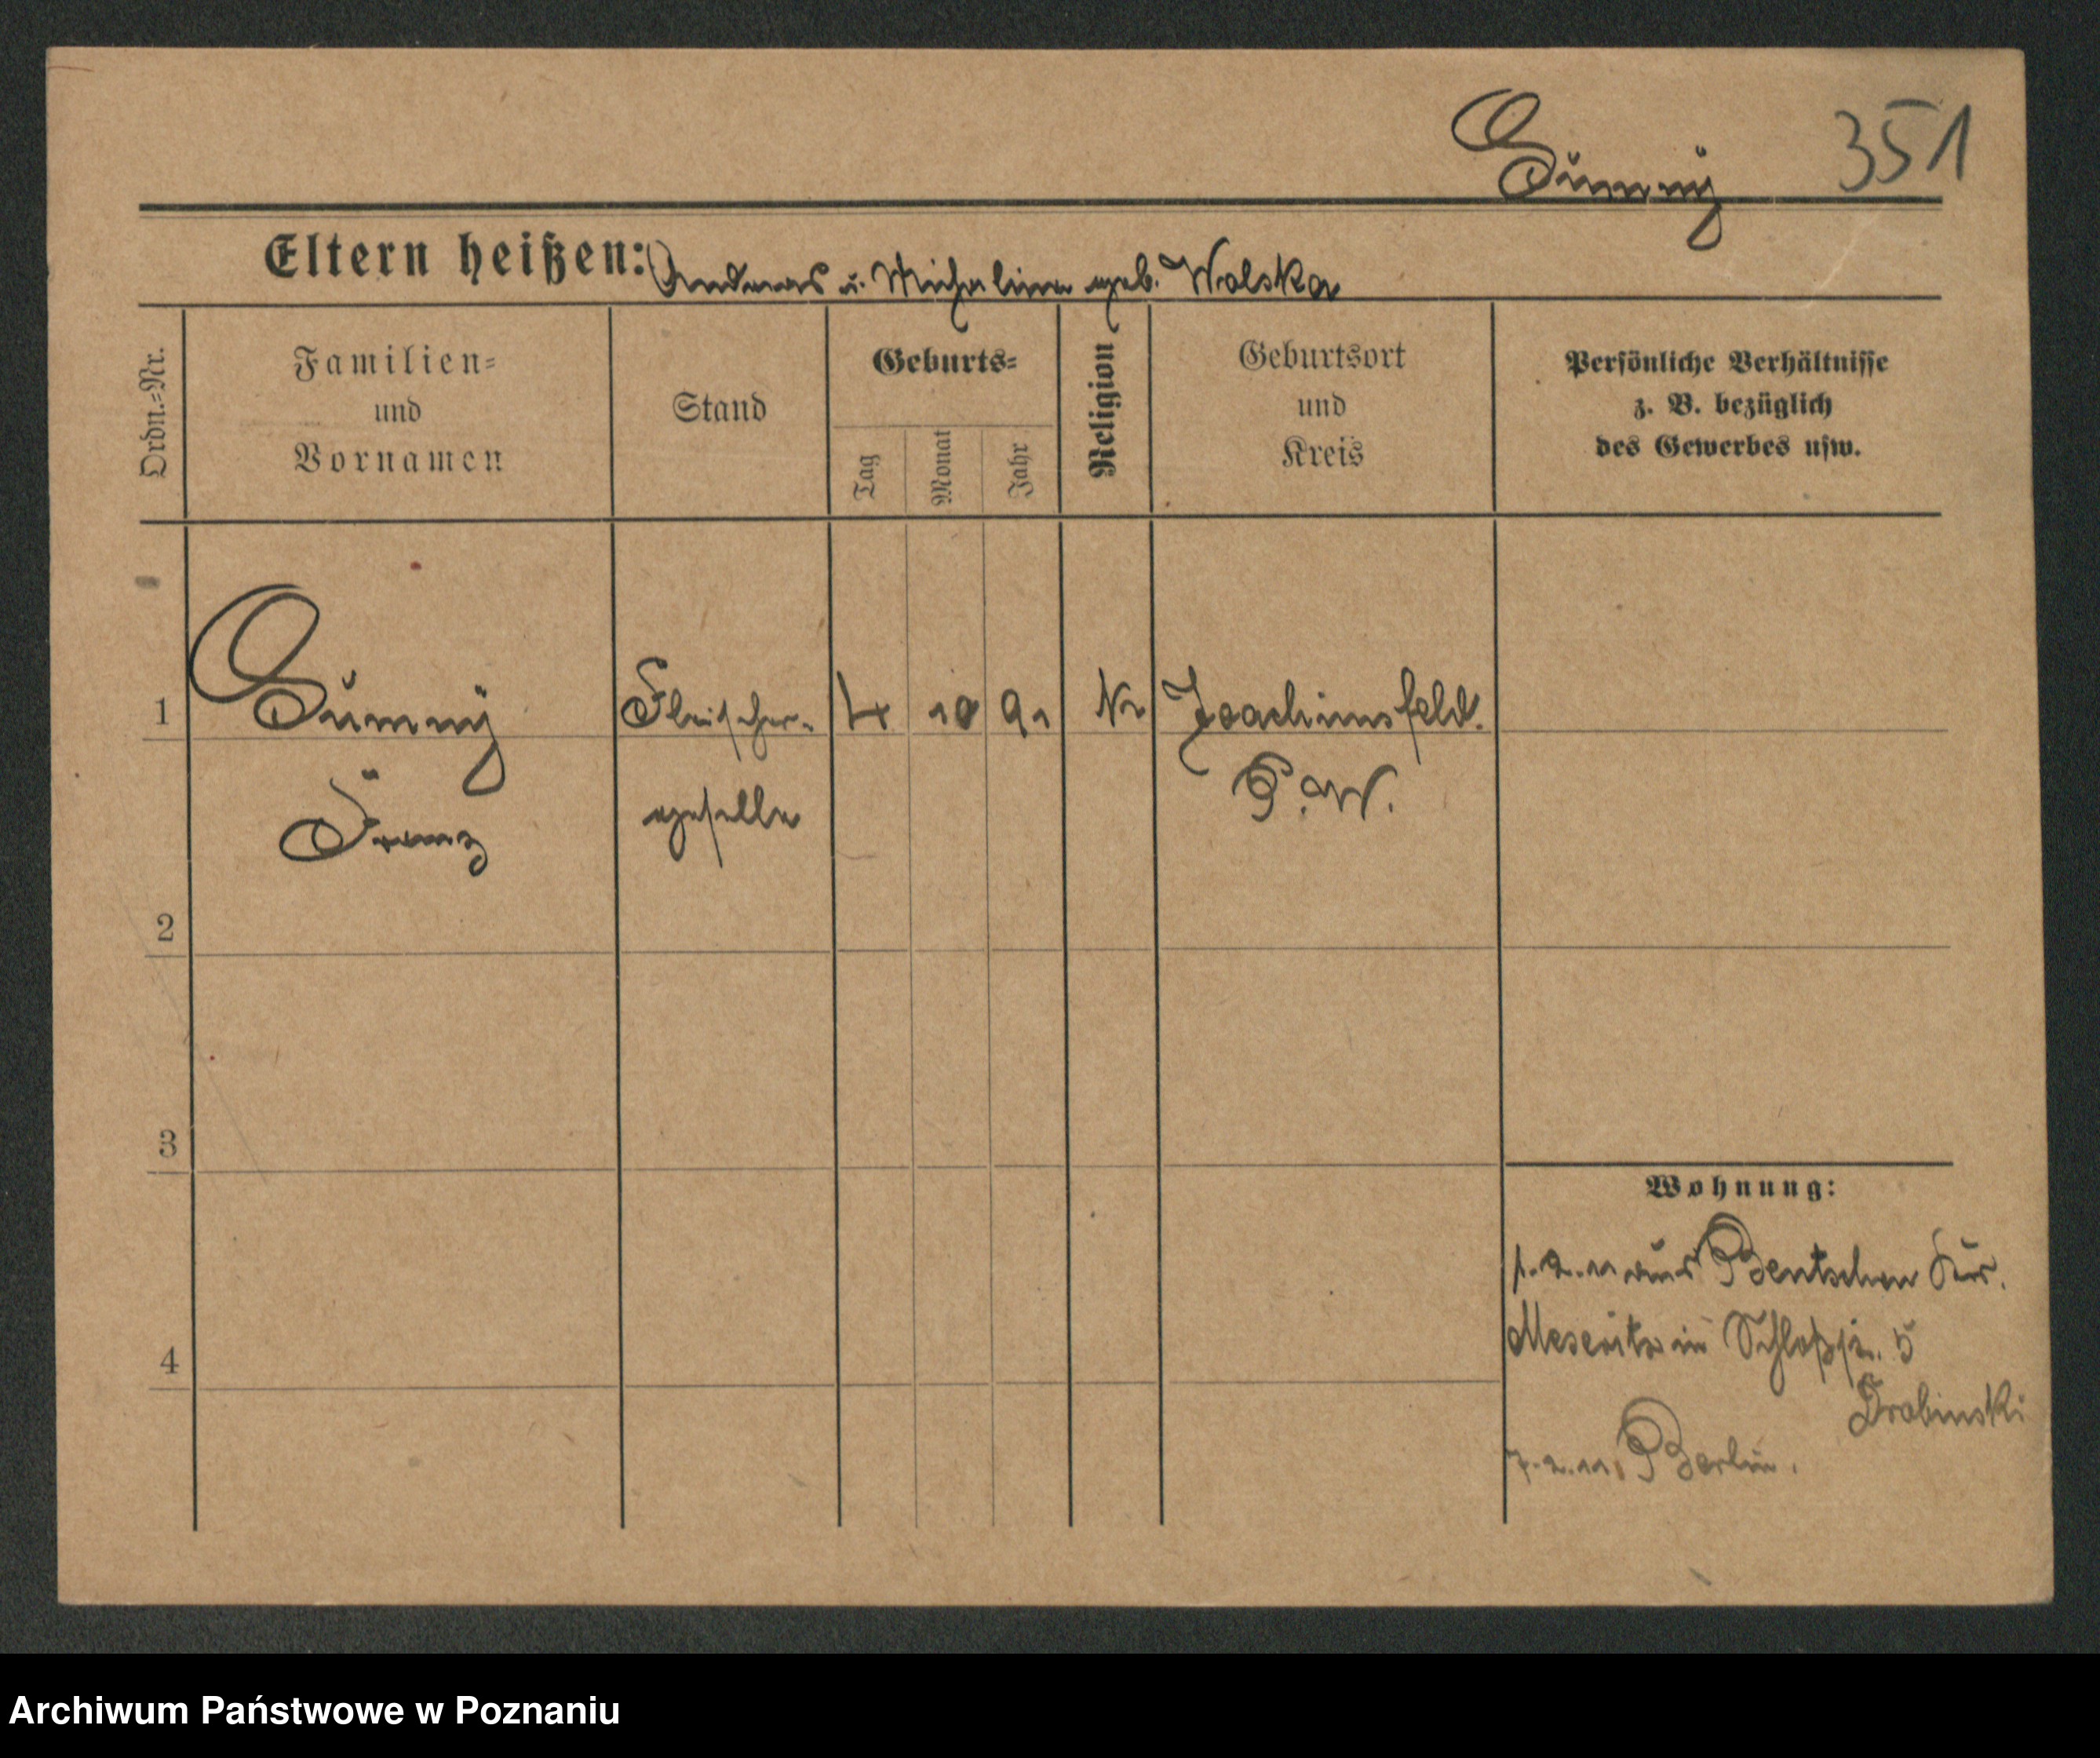 351
Eltern heißen: Andreas u. Michalina geb. Wolska
Ordn.=Nr.
Familien=
und
Vornamen
Stand
Geburts=
Tag
Monat
Jahr
Religion
Geburtsort
und
Kreis
Persönliche Verhältnisse
z. B. bezüglich
des Gewerbes usw.
1 Fleischer- 4 10 91 Joachimsfeld.
Franz geselle P. W.
2
3
4
Wohnung:
1.2.11 aus Bentschen Krs.
Meseritz in Schloßstr. 5
Drabinski
7.2.11. Berlin.
Archiwum Państwowe w Poznaniu